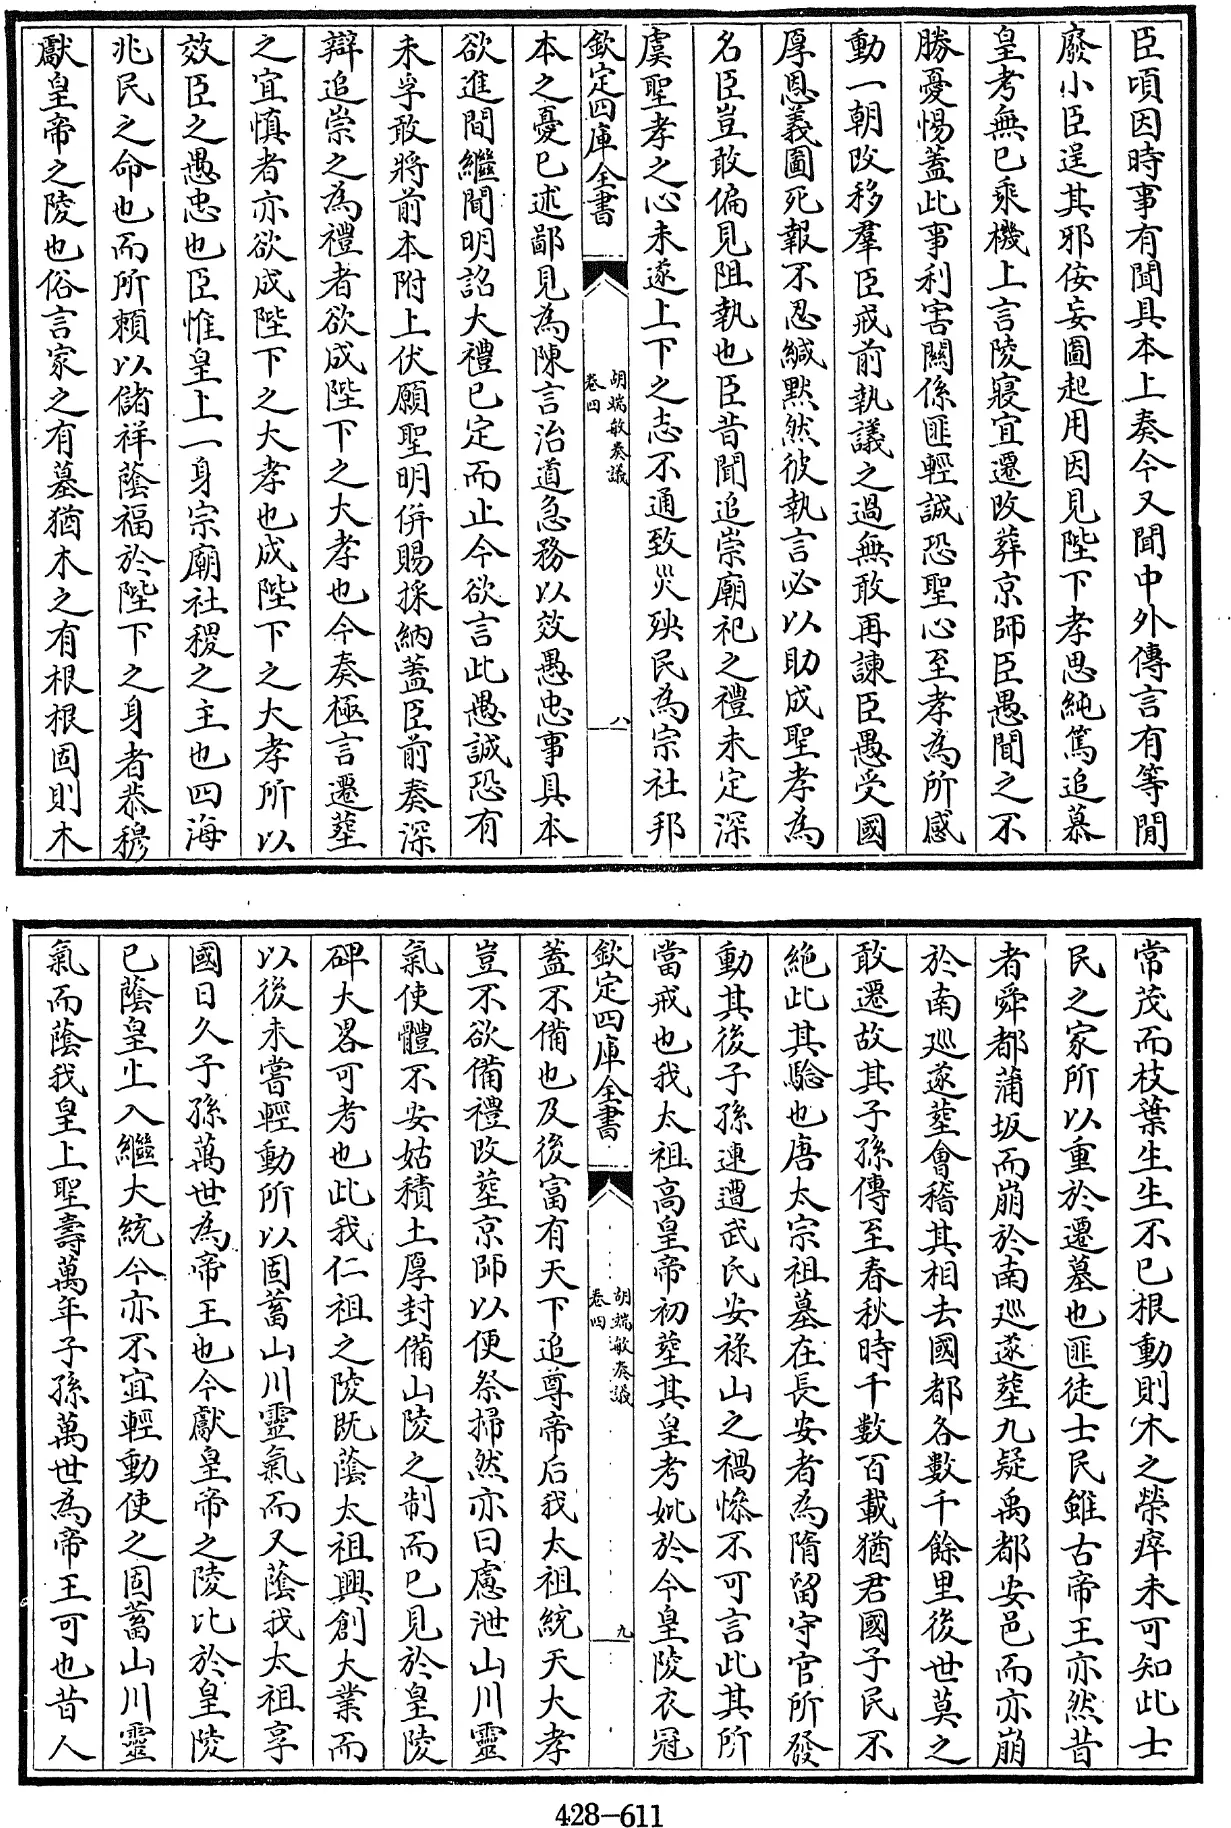 臣頃因時事有聞具本上奏今又聞中外傳言有等閒
廢小臣逞其邪佞妄圖起用因見陛下孝思純篤追慕
皇考無已乘機上言陵寢宜遷改葬京師臣愚聞之不
勝憂惕蓋此事利害關係匪輕誠恐聖心至孝為所感
動一朝改移羣臣戒前執議之過無敢再諫臣愚受國
厚恩義圖死報不忍緘默然彼執言必以助成聖孝為
名臣豈敢偏見阻執也臣昔聞追崇廟祀之禮未定深
虞聖孝之心未遂上下之志不通致災殃民為宗社邦
欽定四庫全書
胡端敏奏議
卷四
八
本之憂已述鄙見為陳言治道急務以效愚忠事具本
欲進間繼聞明詔大禮已定而止今欲言此愚誠恐有
未孚敢將前本附上伏願聖明併賜採納蓋臣前奏深
辯追崇之為禮者欲成陛下之大孝也今奏極言遷葬
之宜慎者亦欲成陛下之大孝也成陛下之大孝所以
效臣之愚忠也臣惟皇上一身宗廟社稷之主也四海
兆民之命也而所賴以儲祥蔭福於陛下之身者恭穆
獻皇帝之陵也俗言家之有墓猶木之有根根固則木
常茂而枝葉生生不已根動則木之榮瘁未可知此士
民之家所以重於遷墓也匪徒士民雖古帝王亦然昔
者舜都蒲坂而崩於南巡遂葬九疑禹都安邑而亦崩
於南巡遂葬會稽其相去國都各數千餘里後世莫之
敢遷故其子孫傳至春秋時千數百載猶君國子民不
絶此其驗也唐太宗祖墓在長安者為隋留守官所發
動其後子孫連遭武氏安祿山之禍慘不可言此其所
當戒也我太祖高皇帝初葬其皇考妣於今皇陵衣冠
欽定四庫全書
胡端敏奏議
卷四
九
蓋不備也及後富有天下追尊帝后我太祖統天大孝
豈不欲備禮改葬京師以便祭掃然亦曰慮泄山川靈
氣使體不安姑積土厚封備山陵之制而已見於皇陵
碑大畧可考也此我仁祖之陵既蔭太祖興創大業而
以後未嘗輕動所以固蓄山川靈氣而又蔭我太祖享
國日久子孫萬世為帝王也今獻皇帝之陵比於皇陵
已蔭皇上入繼大統今亦不宜輕動使之固蓄山川靈
氣而蔭我皇上聖壽萬年子孫萬世為帝王可也昔人
428-611